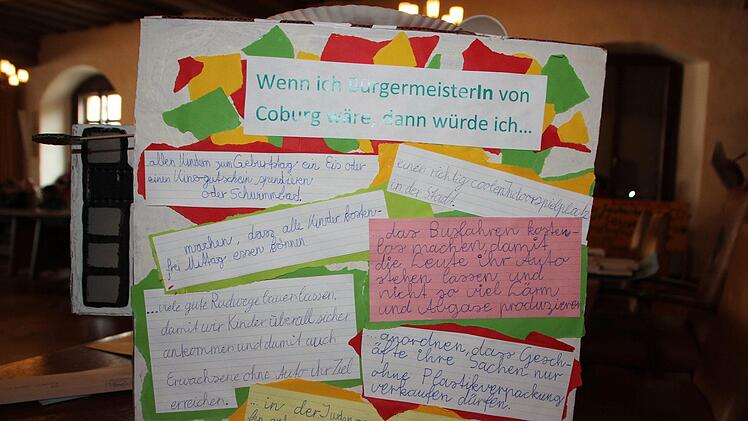 Wenn ich BürgermeisterIn von
Coburg wäre, dann würde ich...
allen Kindern zum Geburtstag ein Eis oder
einen Kinogutschein spendieren
oder Schwimmbad.
einen richtig coolen Indoorspielplatz
in der Stadt.
machen, dass alle Kinder kosten-
frei Mittag essen können
...das Busfahren kosten-
los machen, damit
die Leute ihr Auto
stehen lassen und
nicht so viel Lärm
und Abgase produzieren
...viele gute Radwege bauen lassen,
damit wir Kinder überall sicher
ankommen und damit auch
Erwachsene ohne Auto ihr Ziel
erreichen.
...anordnen, dass Gesch-
äfte ihre Sachen nur
ohne Plastikverpackung
verkaufen dürfen.
... in der